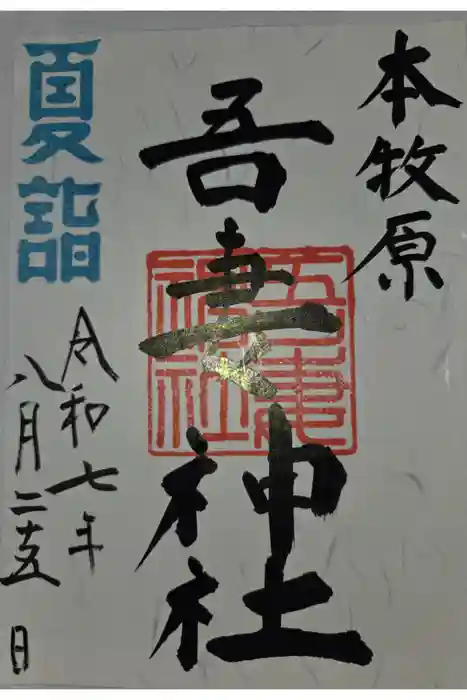 本牧原
吾妻神社
吾妻
神社
夏詣
令和七年
八月二十五日